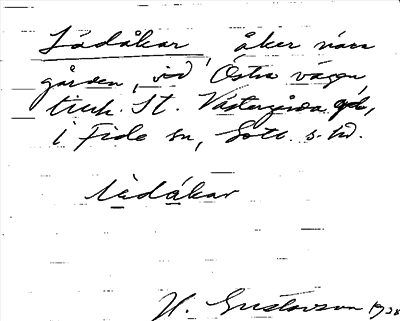 Lådåkar, åker nära
gården, vid Östra vägen,
tillh. St. Västergårda
i Fide sn, Gotl. s. hd.
lådåkar
H. Gustavson